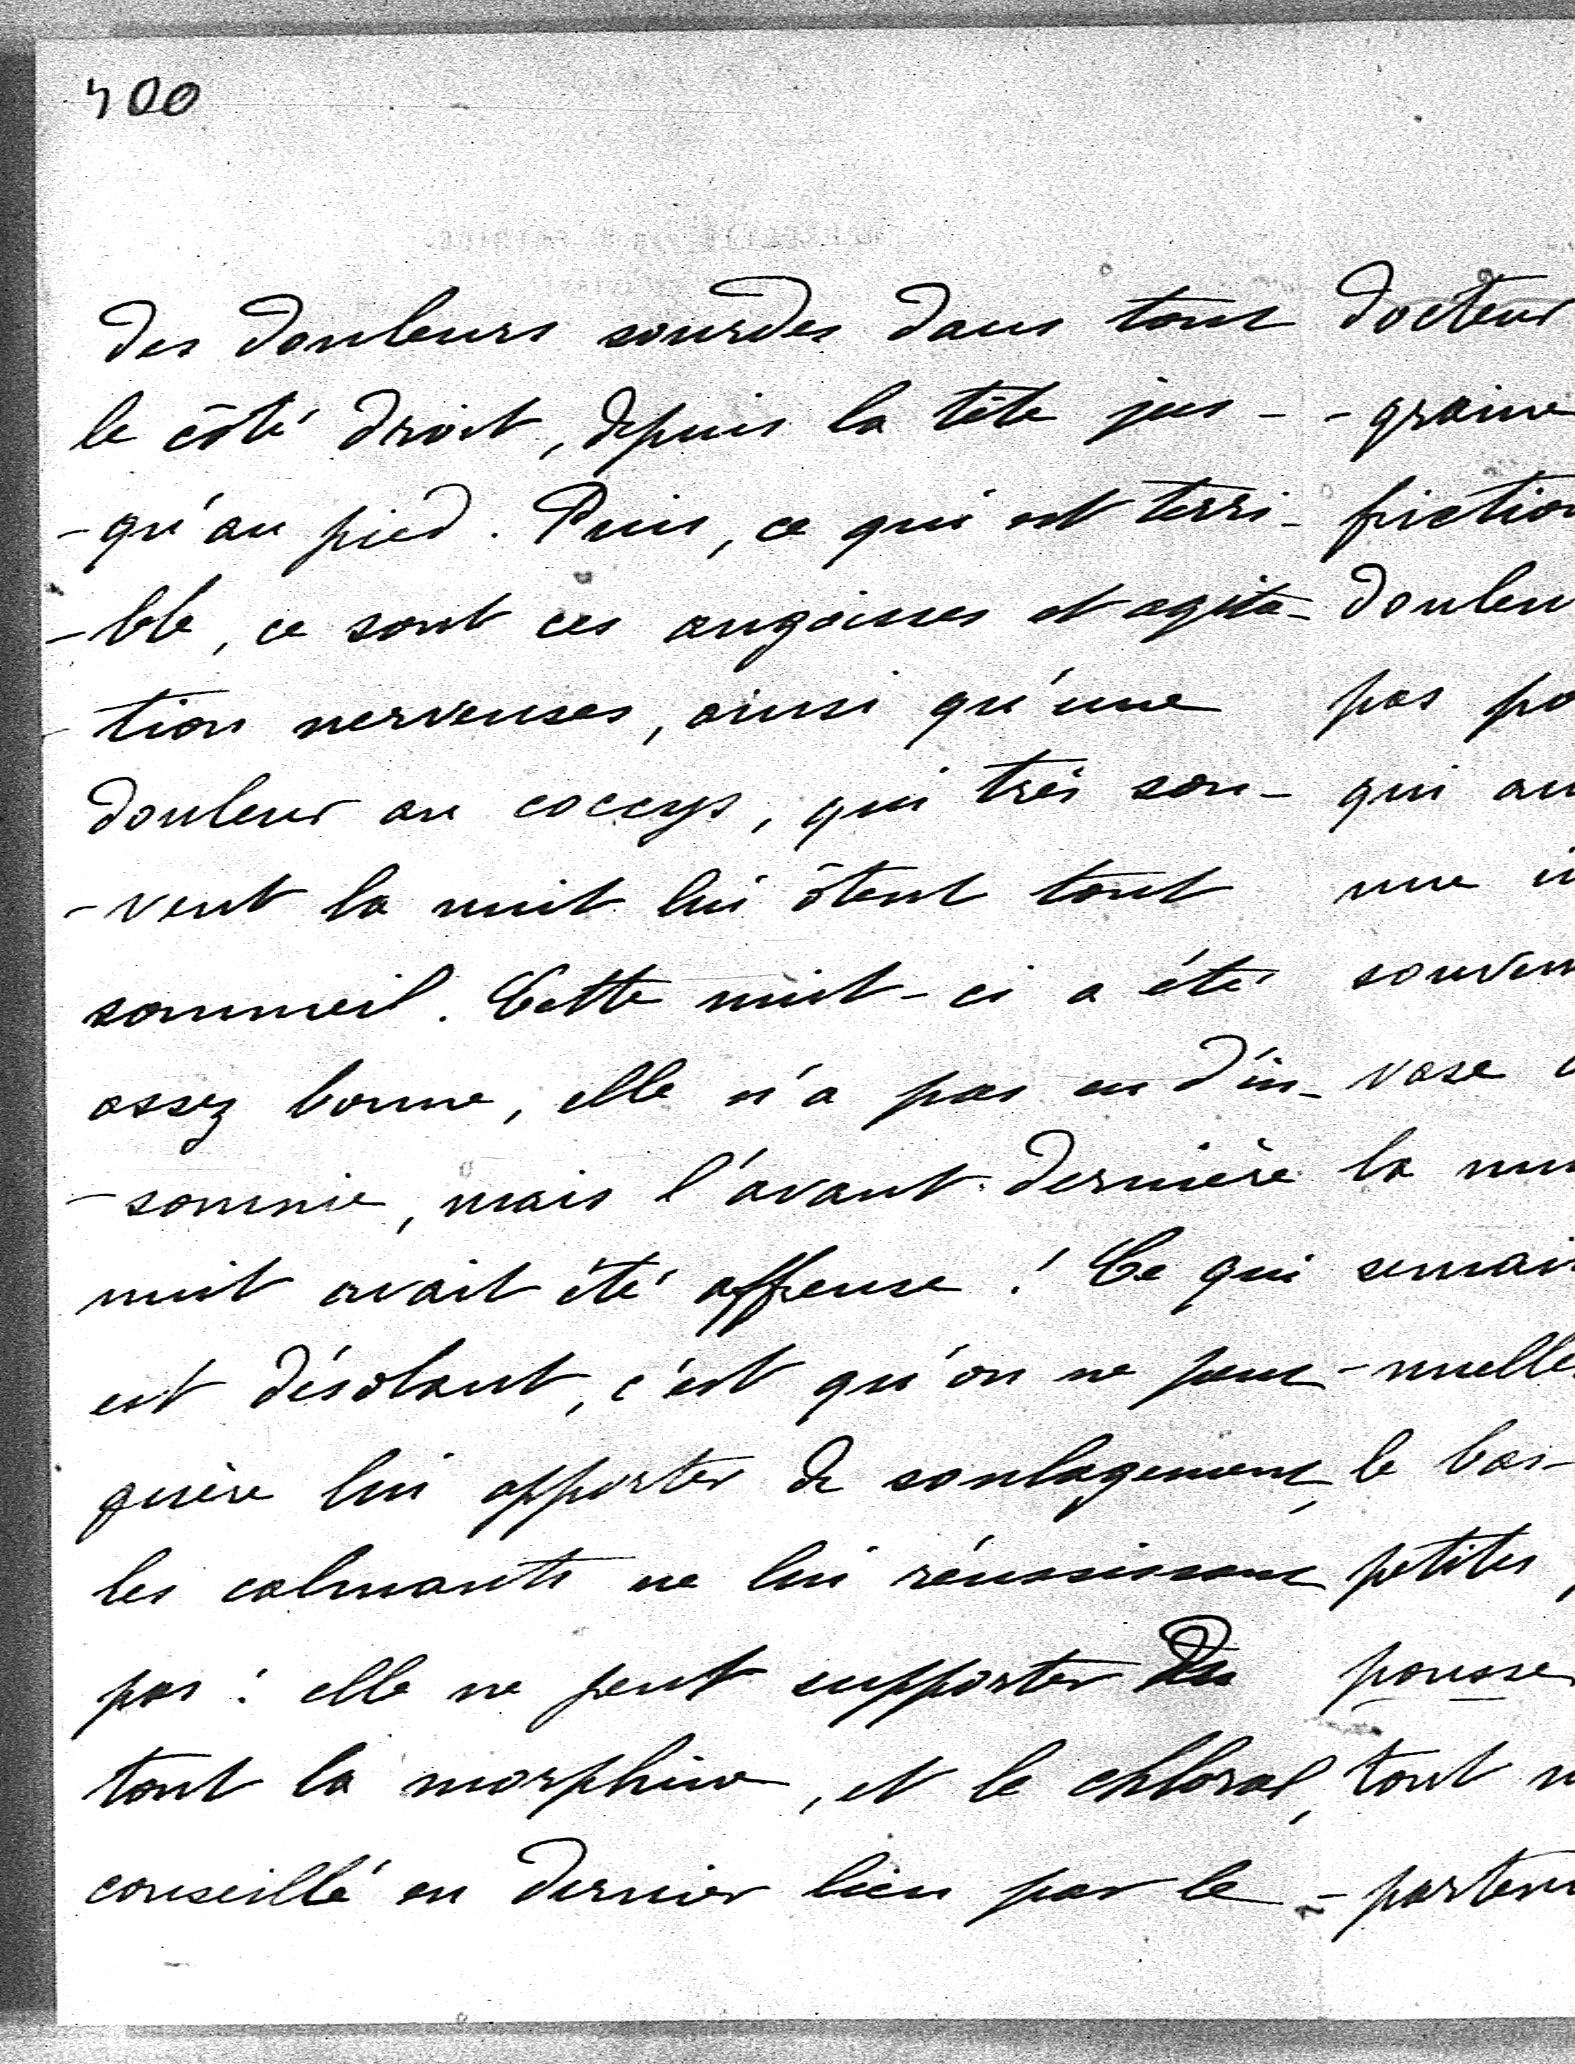 400
des douleurs sourdes dans tout
le côté droit, depuis la tête jus-
-qu'au pied. Puis, ce qui est terri-
-ble, ce sont ces angoisses et agita-
-tion nerveuses, ainsi qu'une
douleur au coccyx, qui très sou-
-vent la nuit lui ôtent tout
sommeil. Cette nuit-ci a été
assez bonne, elle n'a pas eu d'in-
-somnie, mais l'avant-dernière
nuit avait été affreuse ! Ce qui
est désolant, c'est qu'on ne peut
guère lui apporter de soulagement,
les calmants ne lui réussissant
pas : elle ne peut supporter du
tout la morphine, et le chloral,
conseillé en dernier lieu par le
docteur
-graine
friction
douleu
pas po
qui au
une
souven
vase
la nui
semain
-nuelle
le bas-
petites
pousse
tout
-parten